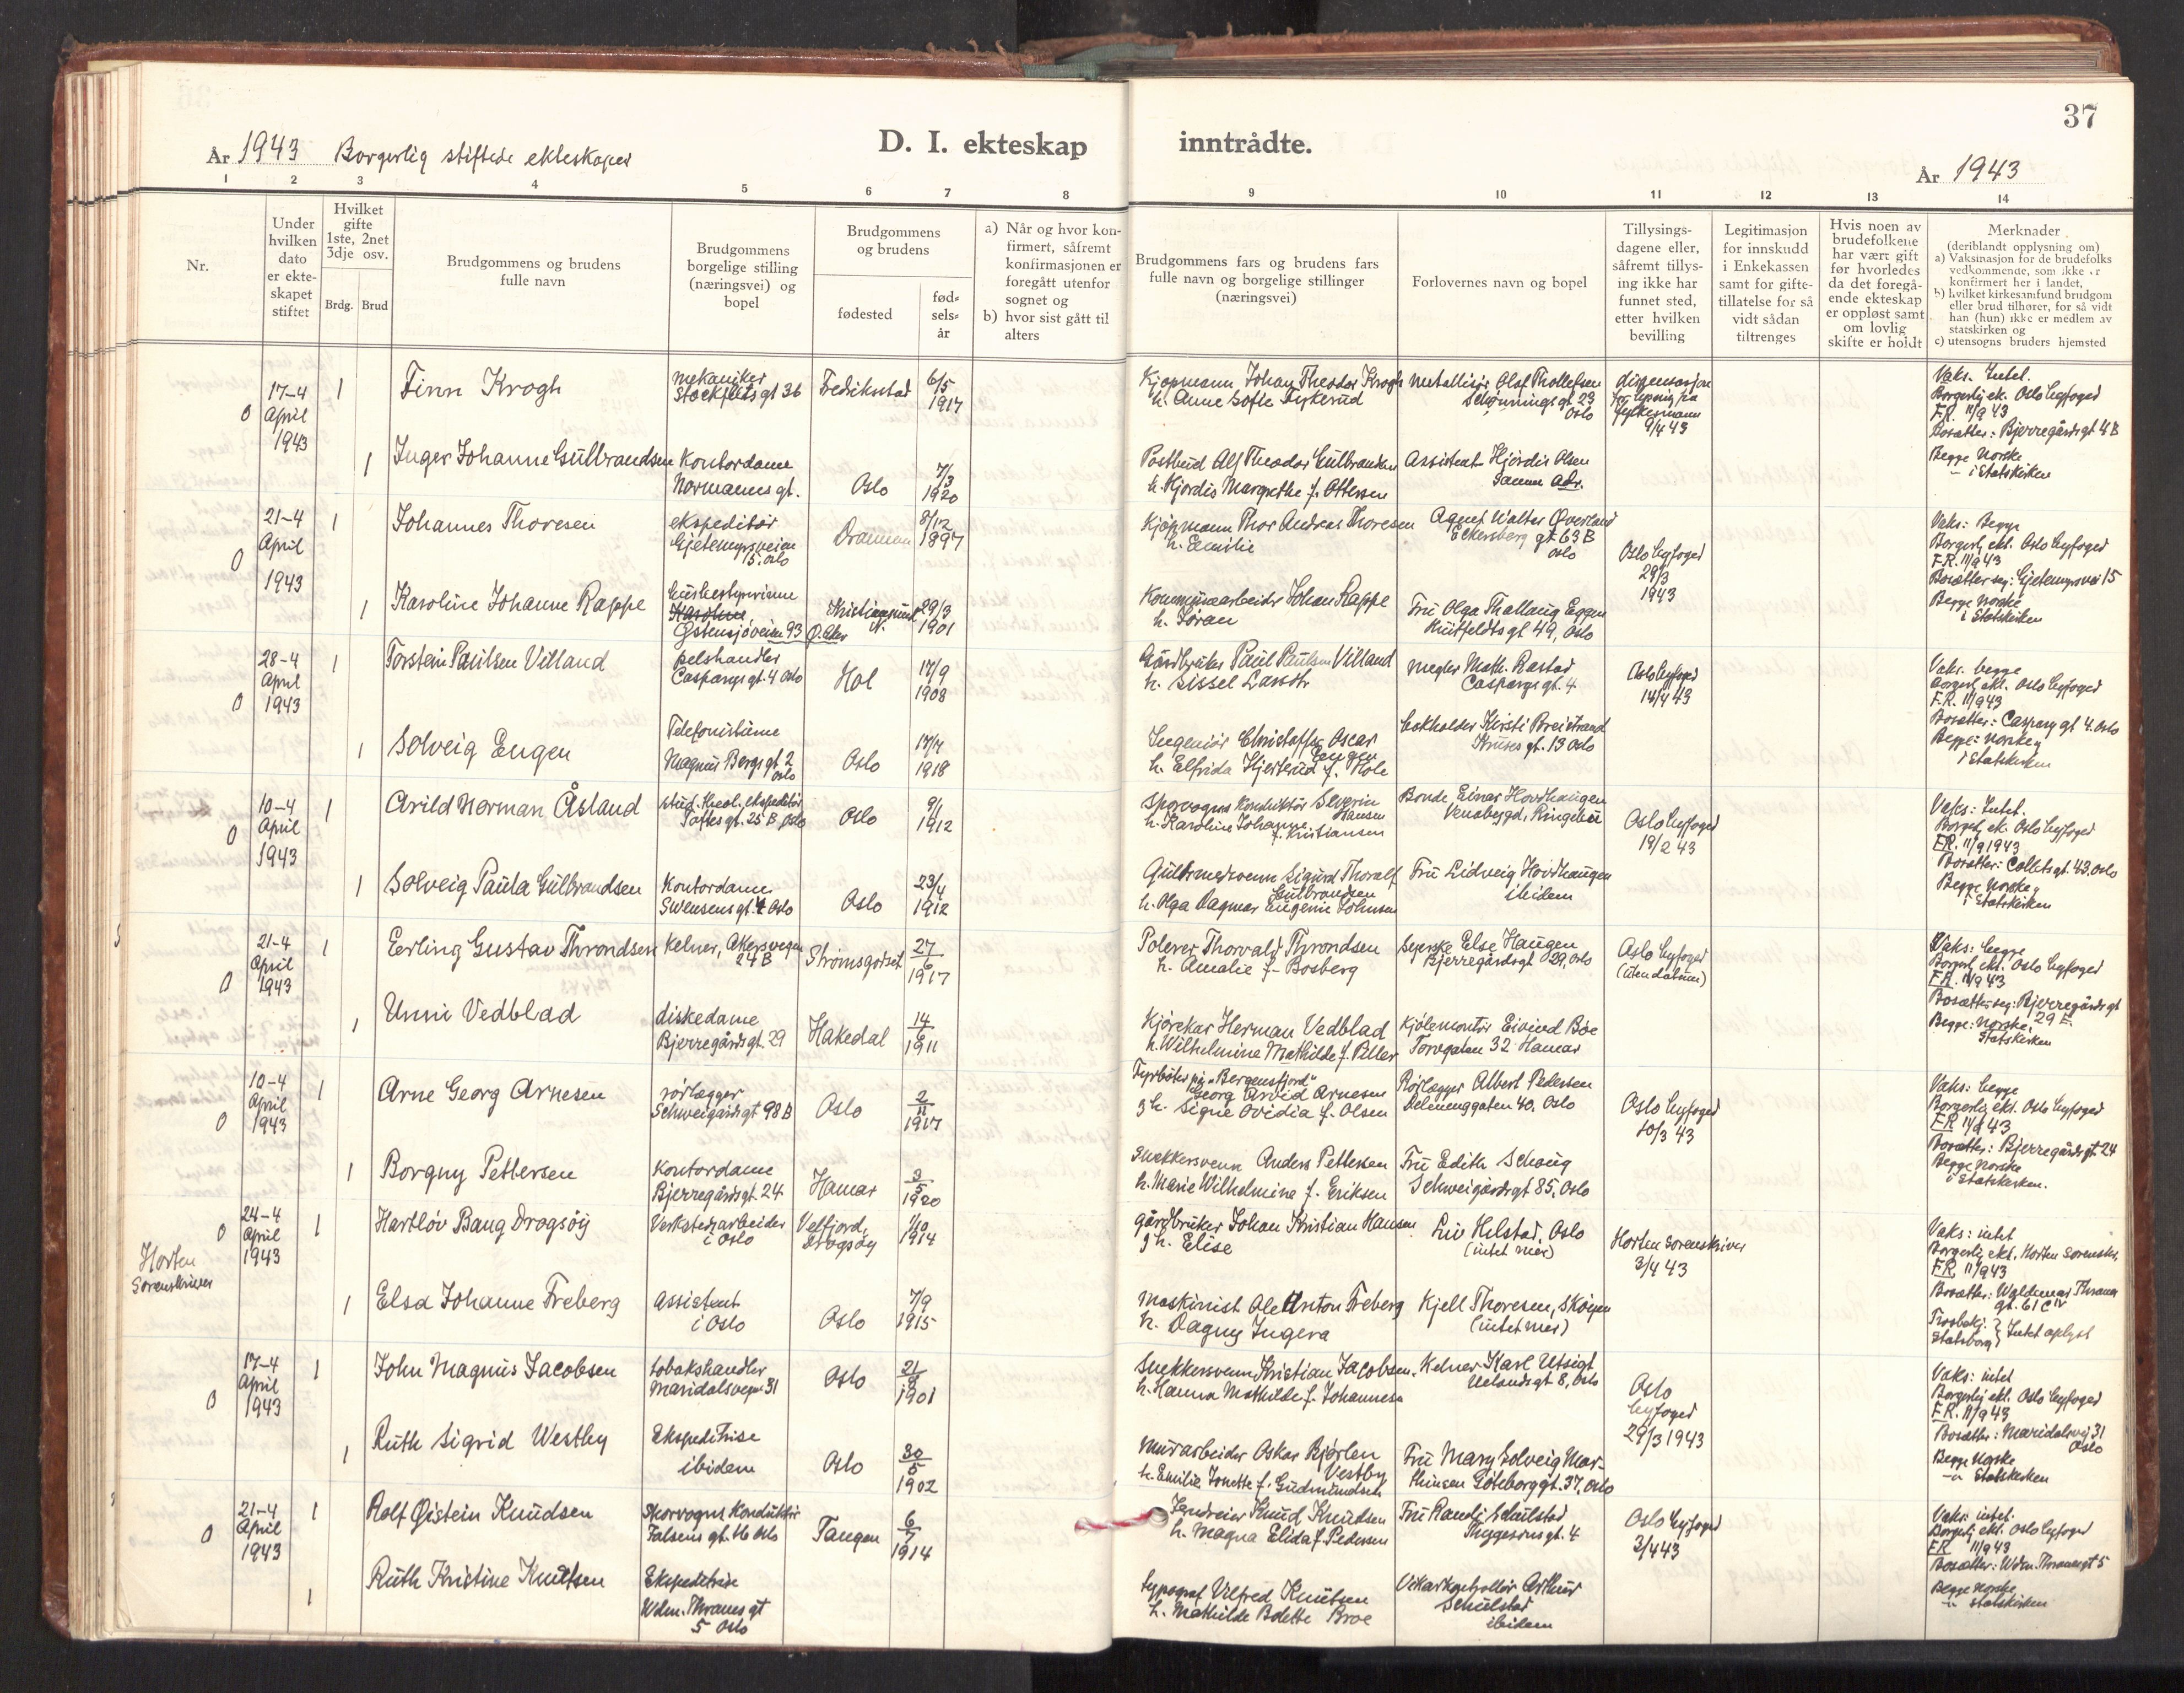 37
År 1943 Borgerlig stiftede ekteskaper
D. I. ekteskap inntrådte.
År 1943
1 2 3 4 5 6 7 8 9 10 11 12 13 14
Nr.
Under
hvilken
dato
er ekte-
skapet
stiftet
Hvilket
gifte
1ste, 2net
3dje osv.
Brdg. Brud
Brudgommens og brudens
fulle navn
Brudgommens
borgelige stilling
(næringsvei) og
bopel
Brudgommens
og brudens
fødested
fød-
sels-
år
a) Når og hvor kon-
firmert, såfremt
konfirmasjonen er
foregått utenfor
sognet og
b) hvor sist gått til
alters
Brudgommens fars og brudens fars
fulle navn og borgelige stillinger
(næringsvei)
Forlovernes navn og bopel
Tillysings-
dagene eller,
såfremt tillys-
ing ikke har
funnet sted,
etter hvilken
bevilling
Legitimasjon
for innskudd
i Enkekassen
samt for gifte-
tillatelse for så
vidt sådan
tiltrenges
Hvis noen av
brudefolkene
har vært gift
før hvorledes
da det foregå-
ende ekteskap
er oppløst samt
om lovlig
skifte er holdt
Merknader
(deriblandt opplysning om)
a) Vaksinasjon for de brudefolks
vedkommende, som ikke er
konfirmert her i landet,
b) hvilket kirkesamfund brudgom
eller brud tilhører, for så vidt
han (hun) ikke er medlem av
statskirken og
c) utensogns bruders hjemsted
0
17-4
April
1943
1
Finn Krogh
mekaniker
Stockfletsgt 36
Fredikstad
6/5
1917
Kjøpmann Johan Theodor Krogh
h. Anne Sofie
Metallisør Olaf Thollefsen
Schønningsgt 23
Oslo
dispensasjon
fylkesmann
9/4 43
Vaks. Intet.
Borgerlig ek. Oslo byfoged
F.R. 11/9 43
Bosætter: Bjerregårdsgt 4B
Begge Norske
- i Statskirken
1
Inger Johanne Gulbrandsen
Kontordame
Normannsgt.
Oslo
7/3
1920
Postbud Alf Theodor Gulbrandsen
h. Hjordis Margrethe f. Ottersen
Assistent Hjördis Olsen
samme adr.
0
21-4
April
1943
1
Johannes Thoresen
ekspeditør
Gjetemyrsveien
15. Oslo
Drammen
8/12
1897
Kjøpmann Thor Andreas Thoresen
h. Emilie
Agent Walter Øverland
Eckersberg gt 63 B
Oslo
Oslo byfoged
29/3
1943
Vaks: Begge
Borgerlig ekt. Oslo byfoged
F.R. 11/9 43
Bosætter seg: Gjetemyrsvei 15
Begge Norske
i Statskirken
1
Karoline Johanne Rappe
husbestyrerinne
Østensjøveien 93 Ø. Aker
Kristiansund
N.
29/3
1901
Kommunearbeider Johan Rappe
h. Søran
Fru Olga Thallaug Eggen
Huitfeldtsgt 49, Oslo
0
28-4
April
1943
1
Torstein Paulsen Villand
pelshandler
Casparigt. 4 Oslo
Hol
17/9
1908
Gårdbruker Paul Paulsen Villand
h. Sissel Larsdtr
megler Math. Rastad
Casparigt. 4
Oslo byfoged
14/4 43
Vaks. begge
Borgerlig ekt. Oslo byfoged
F.R. 11/9 43
Bosætter: Caspary gt 4. Oslo
Begge: norske
i Statskirken
1
Solveig Engen
Telefonistinne
Magnus Bergs gt 2
Oslo
Oslo
17/7
1918
Ingeniør Christoffer Oscar
Engen
h. Elfrida Hjertrud f. Hole
bokholder Kirsti Breistrand
Kruses gt. 13 Oslo
0
10-4
April
1943
1
Arild Norman Åsland
stud. theol. ekspeditør
Toftesgt. 25 B, Oslo
Oslo
9/1
1912
Sporvogns konduktør Severin
Hansen
h. Karoline Johanne
f. Kristiansen
Bonde Einar Hovdhaugen
Venabygd, Ringebu
Oslo byfoged
19/2 43
Vaks: Intet.
Borgerlig ek. Oslo byfoged
F.R. 11/9 1943
Bosætter: Colletsgt. 43. Oslo
Begge norske
i Statskirken
1
Solveig Paula Gulbrandsen
Kontordame
Swensensgt. 4 Oslo
Oslo
23/4
1912
Gullsmedsvenn Sigurd Thoralf
Gulbrandsen
h. Olga Dagmar Eugenie Johnsen
Fru Lidveig Hovdhaugen
ibidem
0
21-4
April
1943
1
Eerling Gustav Throndsen
Kelner, Akersvegen
24 B
Strømsgodset
27
6
1917
Polerer Thorvald Throndsen
h. Amalie f. Bosberg
Sejerske Else Haugen
Bjerregårdsgt 29, Oslo
Oslo byfoged
(uten datum)
Vaks: begge
Borgerlig ekt. Oslo byfoged
F.R. 11/9 43
Bosætter seg: Bjerregårdsgt
29 E.
Begge: norske.
Statskirken
1
Unni Vedblad
diskedame
Bjerregårdsgt. 29
Hakedal
14
6
1911
Kjørekar Herman Vedblad
h. Wilhelmine Mathilde f. Piller
Kjølemontør Eivind Boe
Torvgaten 32 Hamar
0
10-4
April
1943
1
Arne Georg Arnesen
rørlegger
Schweigårdsgt 98 B
Oslo
2
11
1917
Fyrbøter på "Bergensfjord"
Georg Arvid Arnesen
g h. Signe Ovidia f. Olsen
Rørlægger Albert Pedersen
Delenenggaten 40. Oslo
Oslo byfoged
10/3 43
Vaks: begge
Borgerlig ekt. Oslo byfoged
F.R. 11/9 43
Bosætter: Bjerregårdsgt 24
Begge Norske
i Statskirken.
1
Borgny Pettersen
Kontordame
Bjerregårdsgt. 24
Hamar
3
5
1920
Snekkersvenn Anders Pettersen
h. Marie Wilhelmine f. Eriksen
Fru Edith Schaug
Schweigårdsgt 85, Oslo
Horten
Sorenskriver
0
24-4
April
1943
1
Hartløv Baug Drogsøy
Verkstedsarbeider
i Oslo
Velfjord,
Drogsøy
1/10
1914
gårdbruker Johan Kristian Hansen
g h. Elise
Liv Helstad, Oslo
(intet mer)
Horten Sorenskriver
3/4 43
Vaks: intet
Borgerlig ekt. Horten Sorenskr.
F.R. 11/9 43
Bosætter: Waldemar Thranes
gt. 61 C IV
Trosbekj: } Intet oplyst
Statsborg }
1
Elsa Johanne Freberg
Assistent
i Oslo
Oslo
7/9
1915
Maskinist Ole Anton Freberg
h. Dagny Ingera
Kjell Thoresen, Skøyen
(intet mer)
0
17-4
April
1943
1
John Magnus Jacobsen
tobakshandler
Maridalsvegen 31
Oslo
21
8
1901
Snekkersvenn Kristian Jacobsen.
h. Hanna Mathilde f. Johannesen
Kelner Karl Utsigt
Uelandsgt 8, Oslo
Oslo
byfoged
29/3 1943
Vaks: intet
Borgerlig ekt. Oslo byfoged
F.R. 11/9 43
Bosætter: Maridalsvej 31
Oslo
Begge Norske
-"- Statskirken
1
Ruth Sigrid Westby
Ekspeditrise
ibidem
Oslo
30
5
1902
Murarbeider Oskar Bjørlen
Vestby
h. Emilie Jonette f. Gudmundsen
Fru Mary Solveig Mar-
thinsen Göteborggt. 37, Oslo
0
21-4
April
1943
1
Rolf Øistein Knudsen
Sporvogns konduktør
Falsens gt. 16 Oslo
Tangen
6
7
1914
Knud Knudsen
h. Magna Elida f. Pedersen
Fru Randi Schulstad
Thygesons gt. 4
Oslo byfoged
3/4 43
Vaks: intet.
Borgerlig ekt. Oslo byfoged
F.R. 11/9 43
Bosætter: Wdm. Thranesgt 5
Begge Norske
-"- statskirken
1
Ruth Kristine Knudtsen
Ekspeditrise
Wdm. Thranes gt
5 Oslo
typograf Vilfred Knutsen
h. Mathilde Bolette Broe
Arthur
Schulstad
ibidem